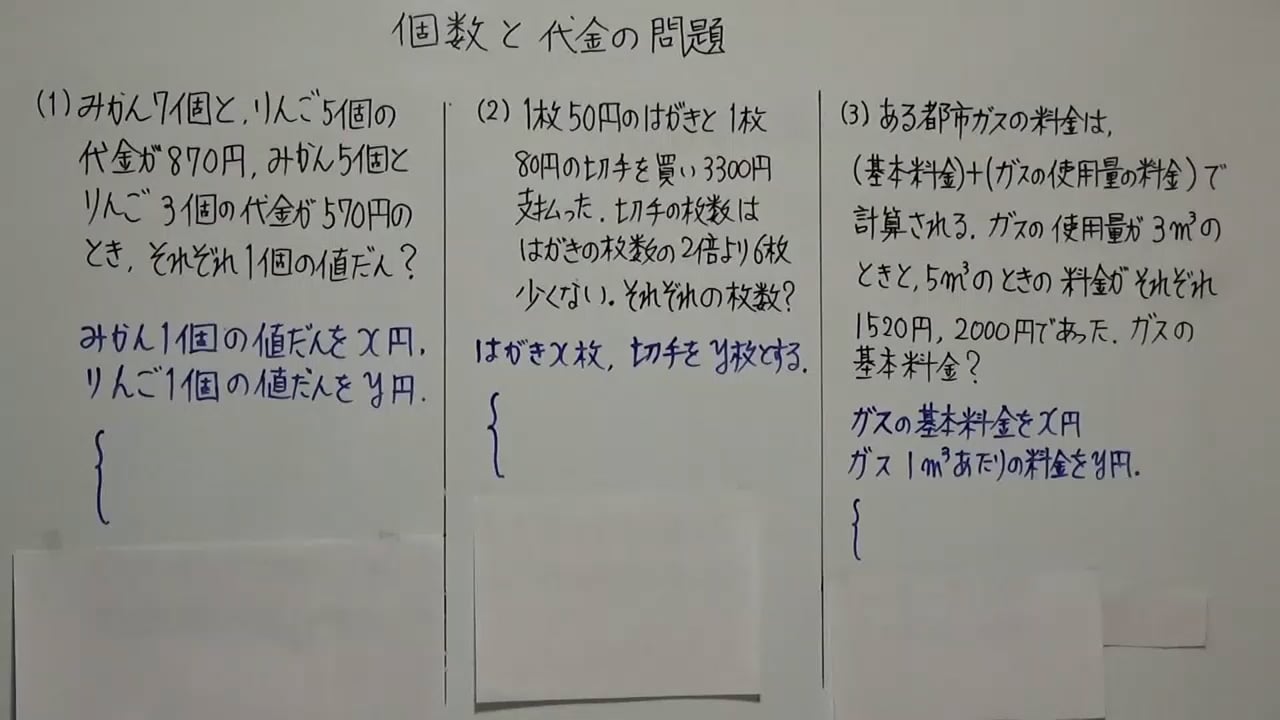 個数と代金の問題
(1) みかん7個と,りんご5個の
代金が870円,みかん5個と
りんご3個の代金が570円の
とき,それぞれ1個の値だん?
みかん1個の値だんをx円,
りんご1個の値だんをy円.
{
(2) 1枚50円のはがきと1枚
80円の切手を買い3300円
支払った.切手の枚数は
はがきの枚数の2倍より6枚
少くない.それぞれの枚数?
はがきx枚,切手をy枚とする.
{
(3) ある都市ガスの料金は,
(基本料金)+(ガスの使用量の料金)で
計算される.ガスの使用量が3m³の
ときと,5m³のときの料金がそれぞれ
1520円,2000円であった.ガスの
基本料金?
ガスの基本料金をx円
ガス1m³あたりの料金をy円.
{